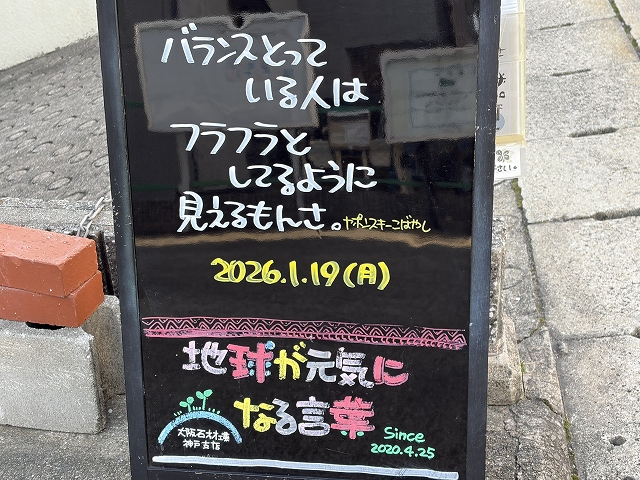 バランスとって
いる人は
フラフラと
してるように
見えるもんさ。ヤポンスキーこばやし
2026.1.19(月)
地球が元気に
なる言葉
大阪石材工業
神戸支店
Since
2020.4.25
さい。